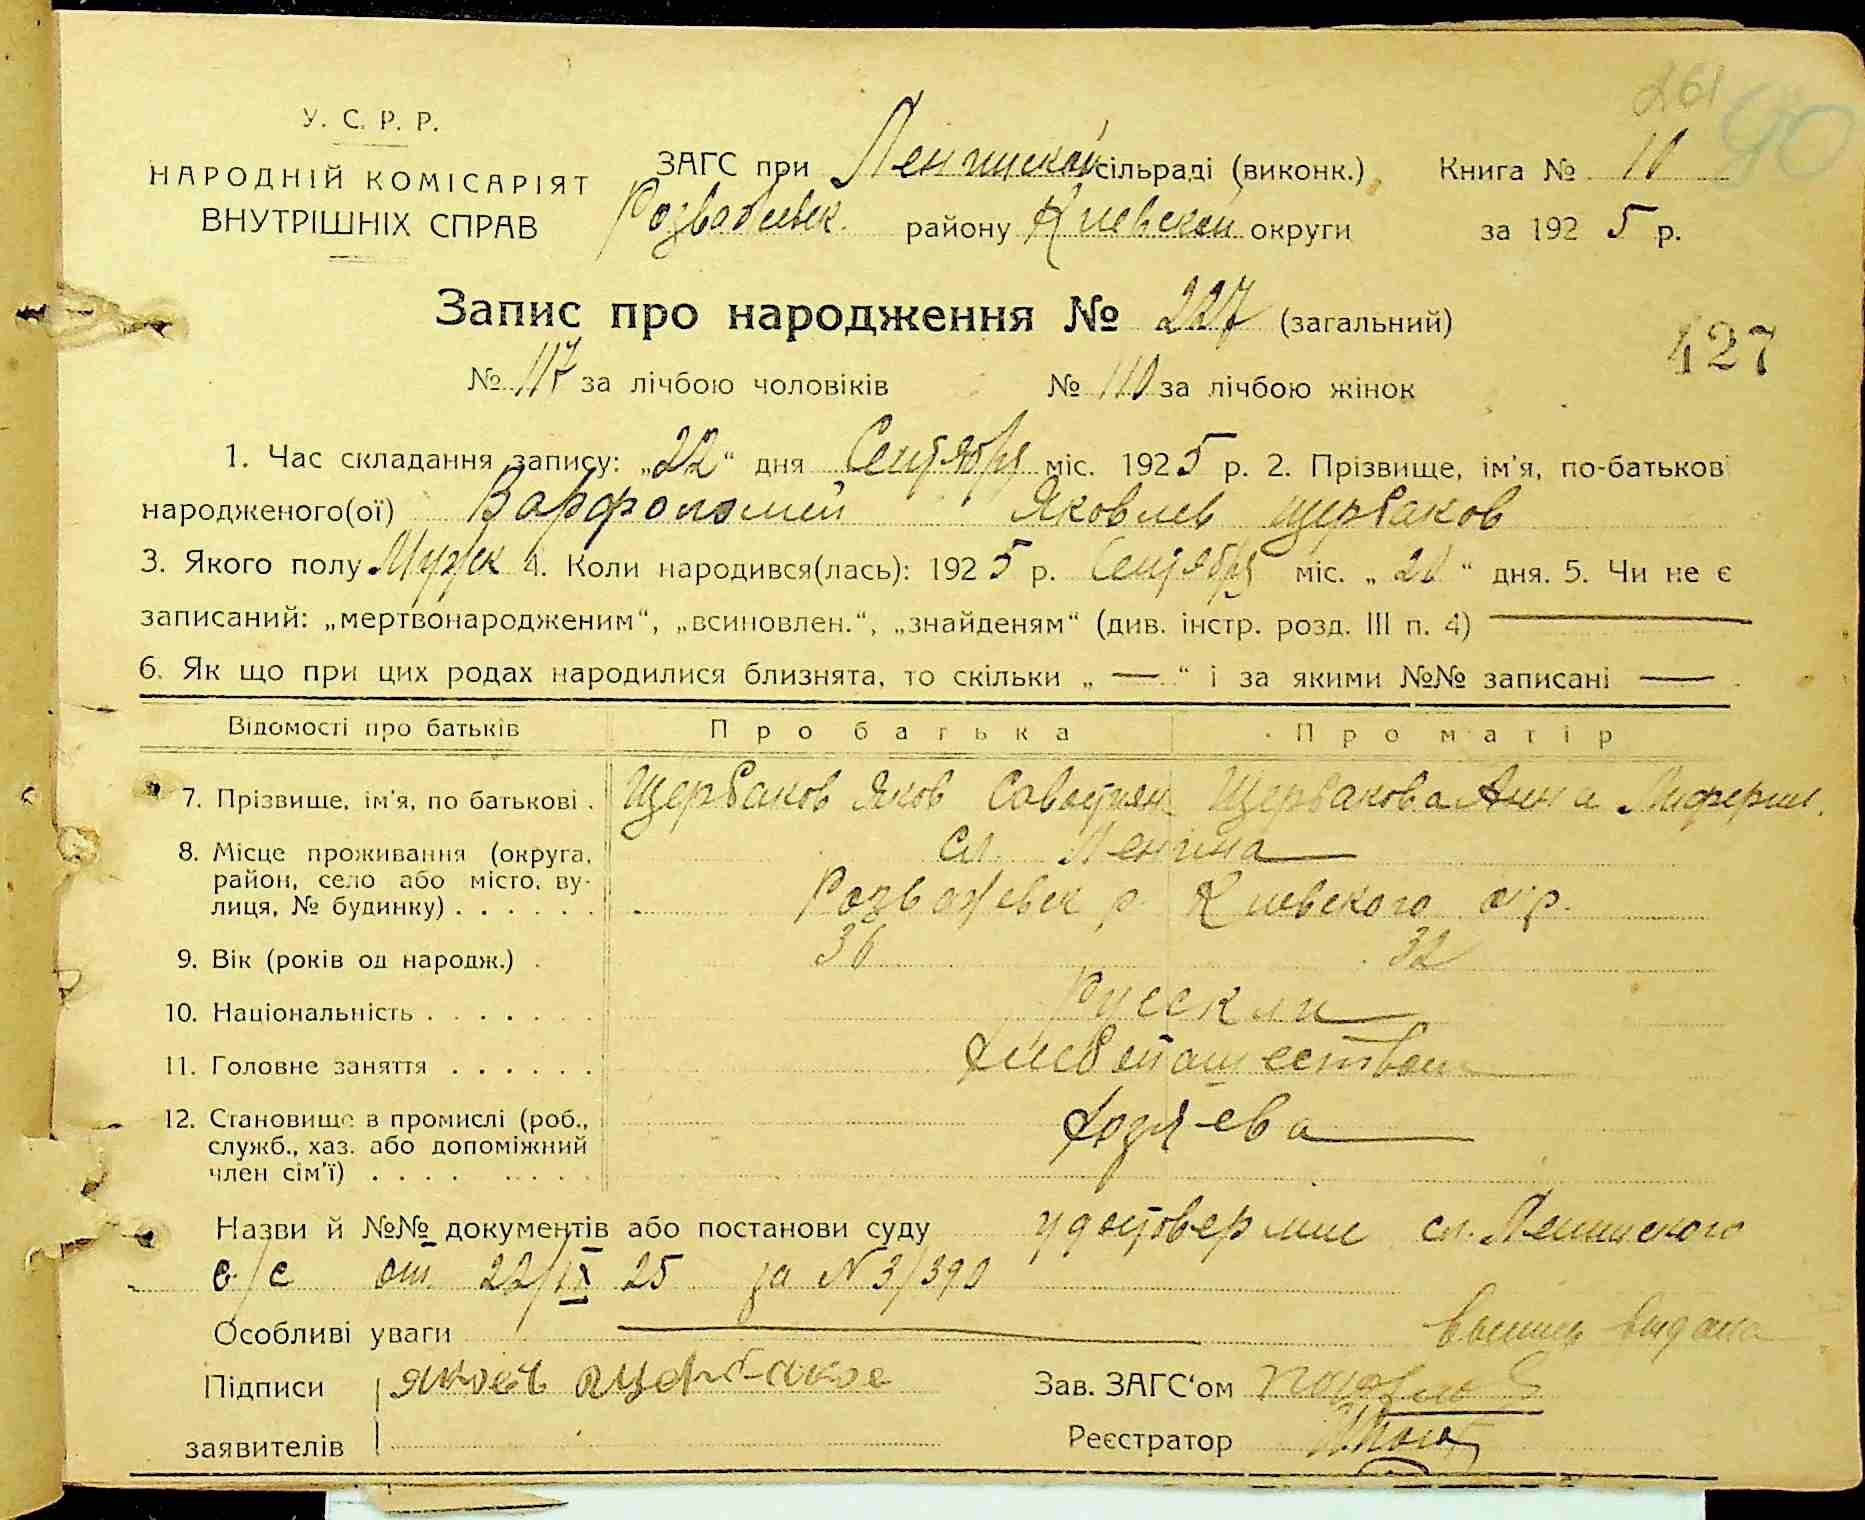 261 90
У. С. Р. Р.
НАРОДНІЙ КОМІСАРІЯТ
ВНУТРІШНІХ СПРАВ
ЗАГС при Ленинской сільраді (виконк.) Книга № 10
Розважевск. району Киевской округи за 1925 р.
Запис про народження № 227 (загальний)
427
№ 117 за лічбою чоловіків № 110 за лічбою жінок
1. Час складання запису: „22“ дня Сентября міс. 1925 р. 2. Прізвище, ім'я, по-батькові
народженого(ої) Варфоломей Яковлев Щербаков
3. Якого полу Мужск 4. Коли народився(лась): 1925 р. Сентября міс. „20“ дня. 5. Чи не є
записаний: „мертвонародженим“, „всиновлен.“, „знайденям“ (див. інстр. розд. III п. 4) —
6. Як що при цих родах народилися близнята, то скільки „—“ і за якими №№ записані —
Відомості про батьків Про батька Про матір
7. Прізвище, ім'я, по батькові . Щербаков Яков Савватиян Щербакова Анна
8. Місце проживання (округа, район, село або місто, вулиця, № будинку) . . . . . . сл. Ленина
Розважевск р. Киевского окр.
9. Вік (років од народж.) . 36 32
10. Національність . . . . . . . Русские
11. Головне заняття . . . . . . Хлебопашеством
12. Становище в промислі (роб., служб., хаз. або допоміжний член сім'ї) . . . . . . . . . Хозяева
Назви й №№ документів або постанови суду удостоверение сл. Ленинского
с/с от 22/IX 25 за N 3/390
Особливі уваги — выпись выдана
Підписи яковъ щербаков Зав. ЗАГС'ом
заявителів Реєстратор